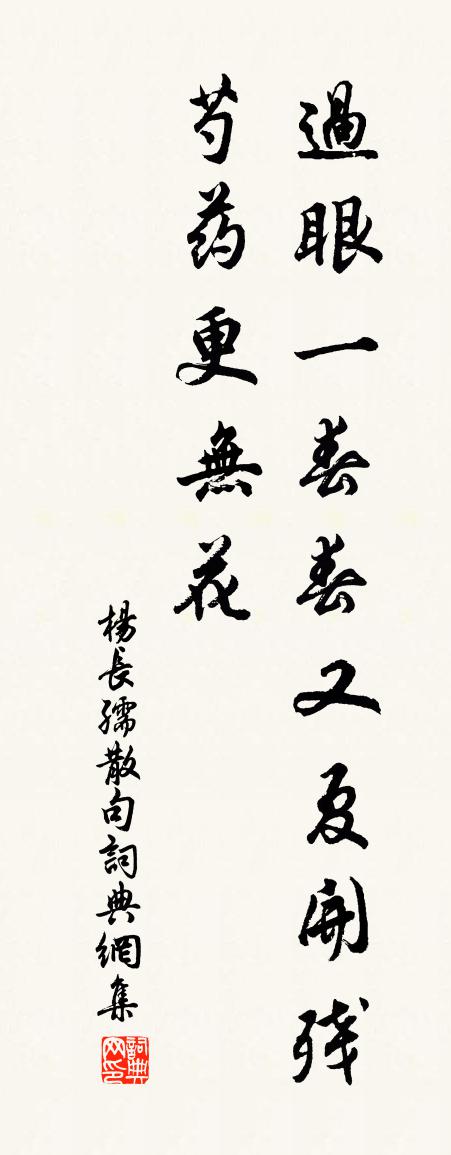 過眼一春春又夏開残
芍葯更無花
楊長孺散句詞典網集
詞典网印